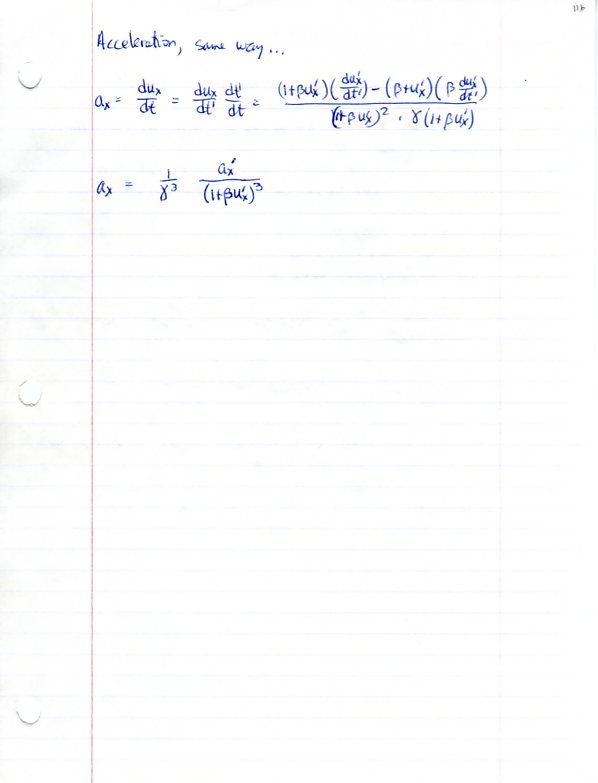 Acceleration, same way...
aₓ = duₓ/dt = duₓ/dt' dt'/dt = (1+βuₓ')(duₓ'/dt') − (β+uₓ')(β duₓ'/dt') / (1+βuₓ')² · γ(1+βuₓ')
aₓ = 1/γ³ aₓ'/(1+βuₓ')³